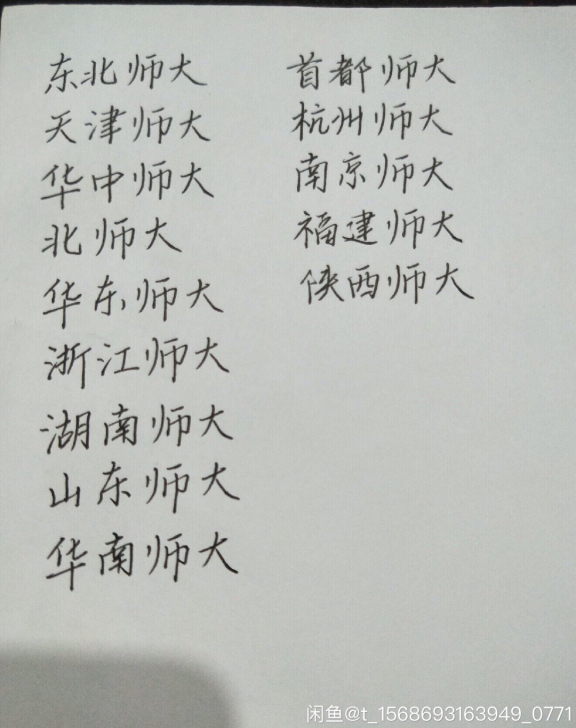 东北师大
天津师大
华中师大
北师大
华东师大
浙江师大
湖南师大
山东师大
华南师大
首都师大
杭州师大
南京师大
福建师大
陕西师大
闲鱼@t_1568693163949_0771